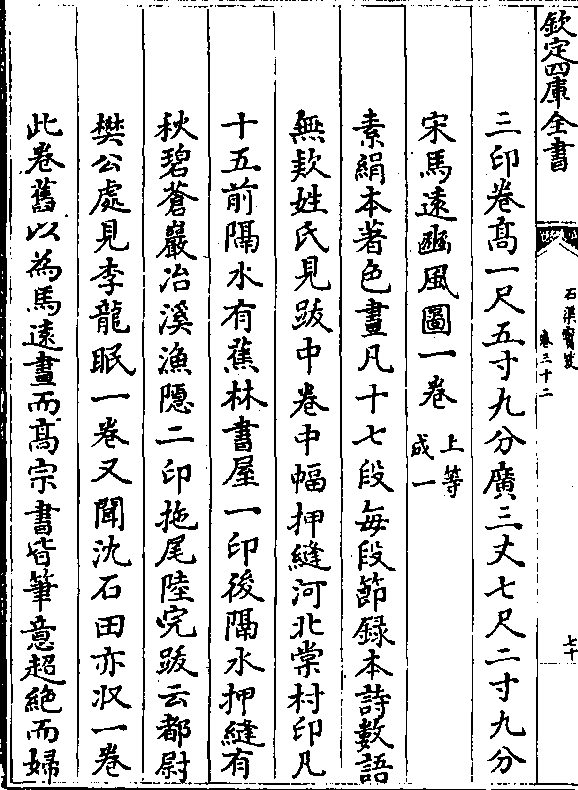 欽定四庫全書
石渠寳笈
卷三十二
七十
三印卷髙一尺五寸九分廣三丈七尺二寸九分
宋馬逺豳風圖一卷 上等
成一
素絹本著色畫凡十七段每段節録本詩數語
無欵姓氏見跋中卷中幅押縫河北棠村印凡
十五前隔水有蕉林書屋一印後隔水押縫有
秋碧蒼巖冶溪漁隱二印拖尾陸完跋云都尉
樊公處見李龍眠一卷又聞沈石田亦收一卷
此卷舊以為馬逺畫而髙宗書皆筆意超絶而婦